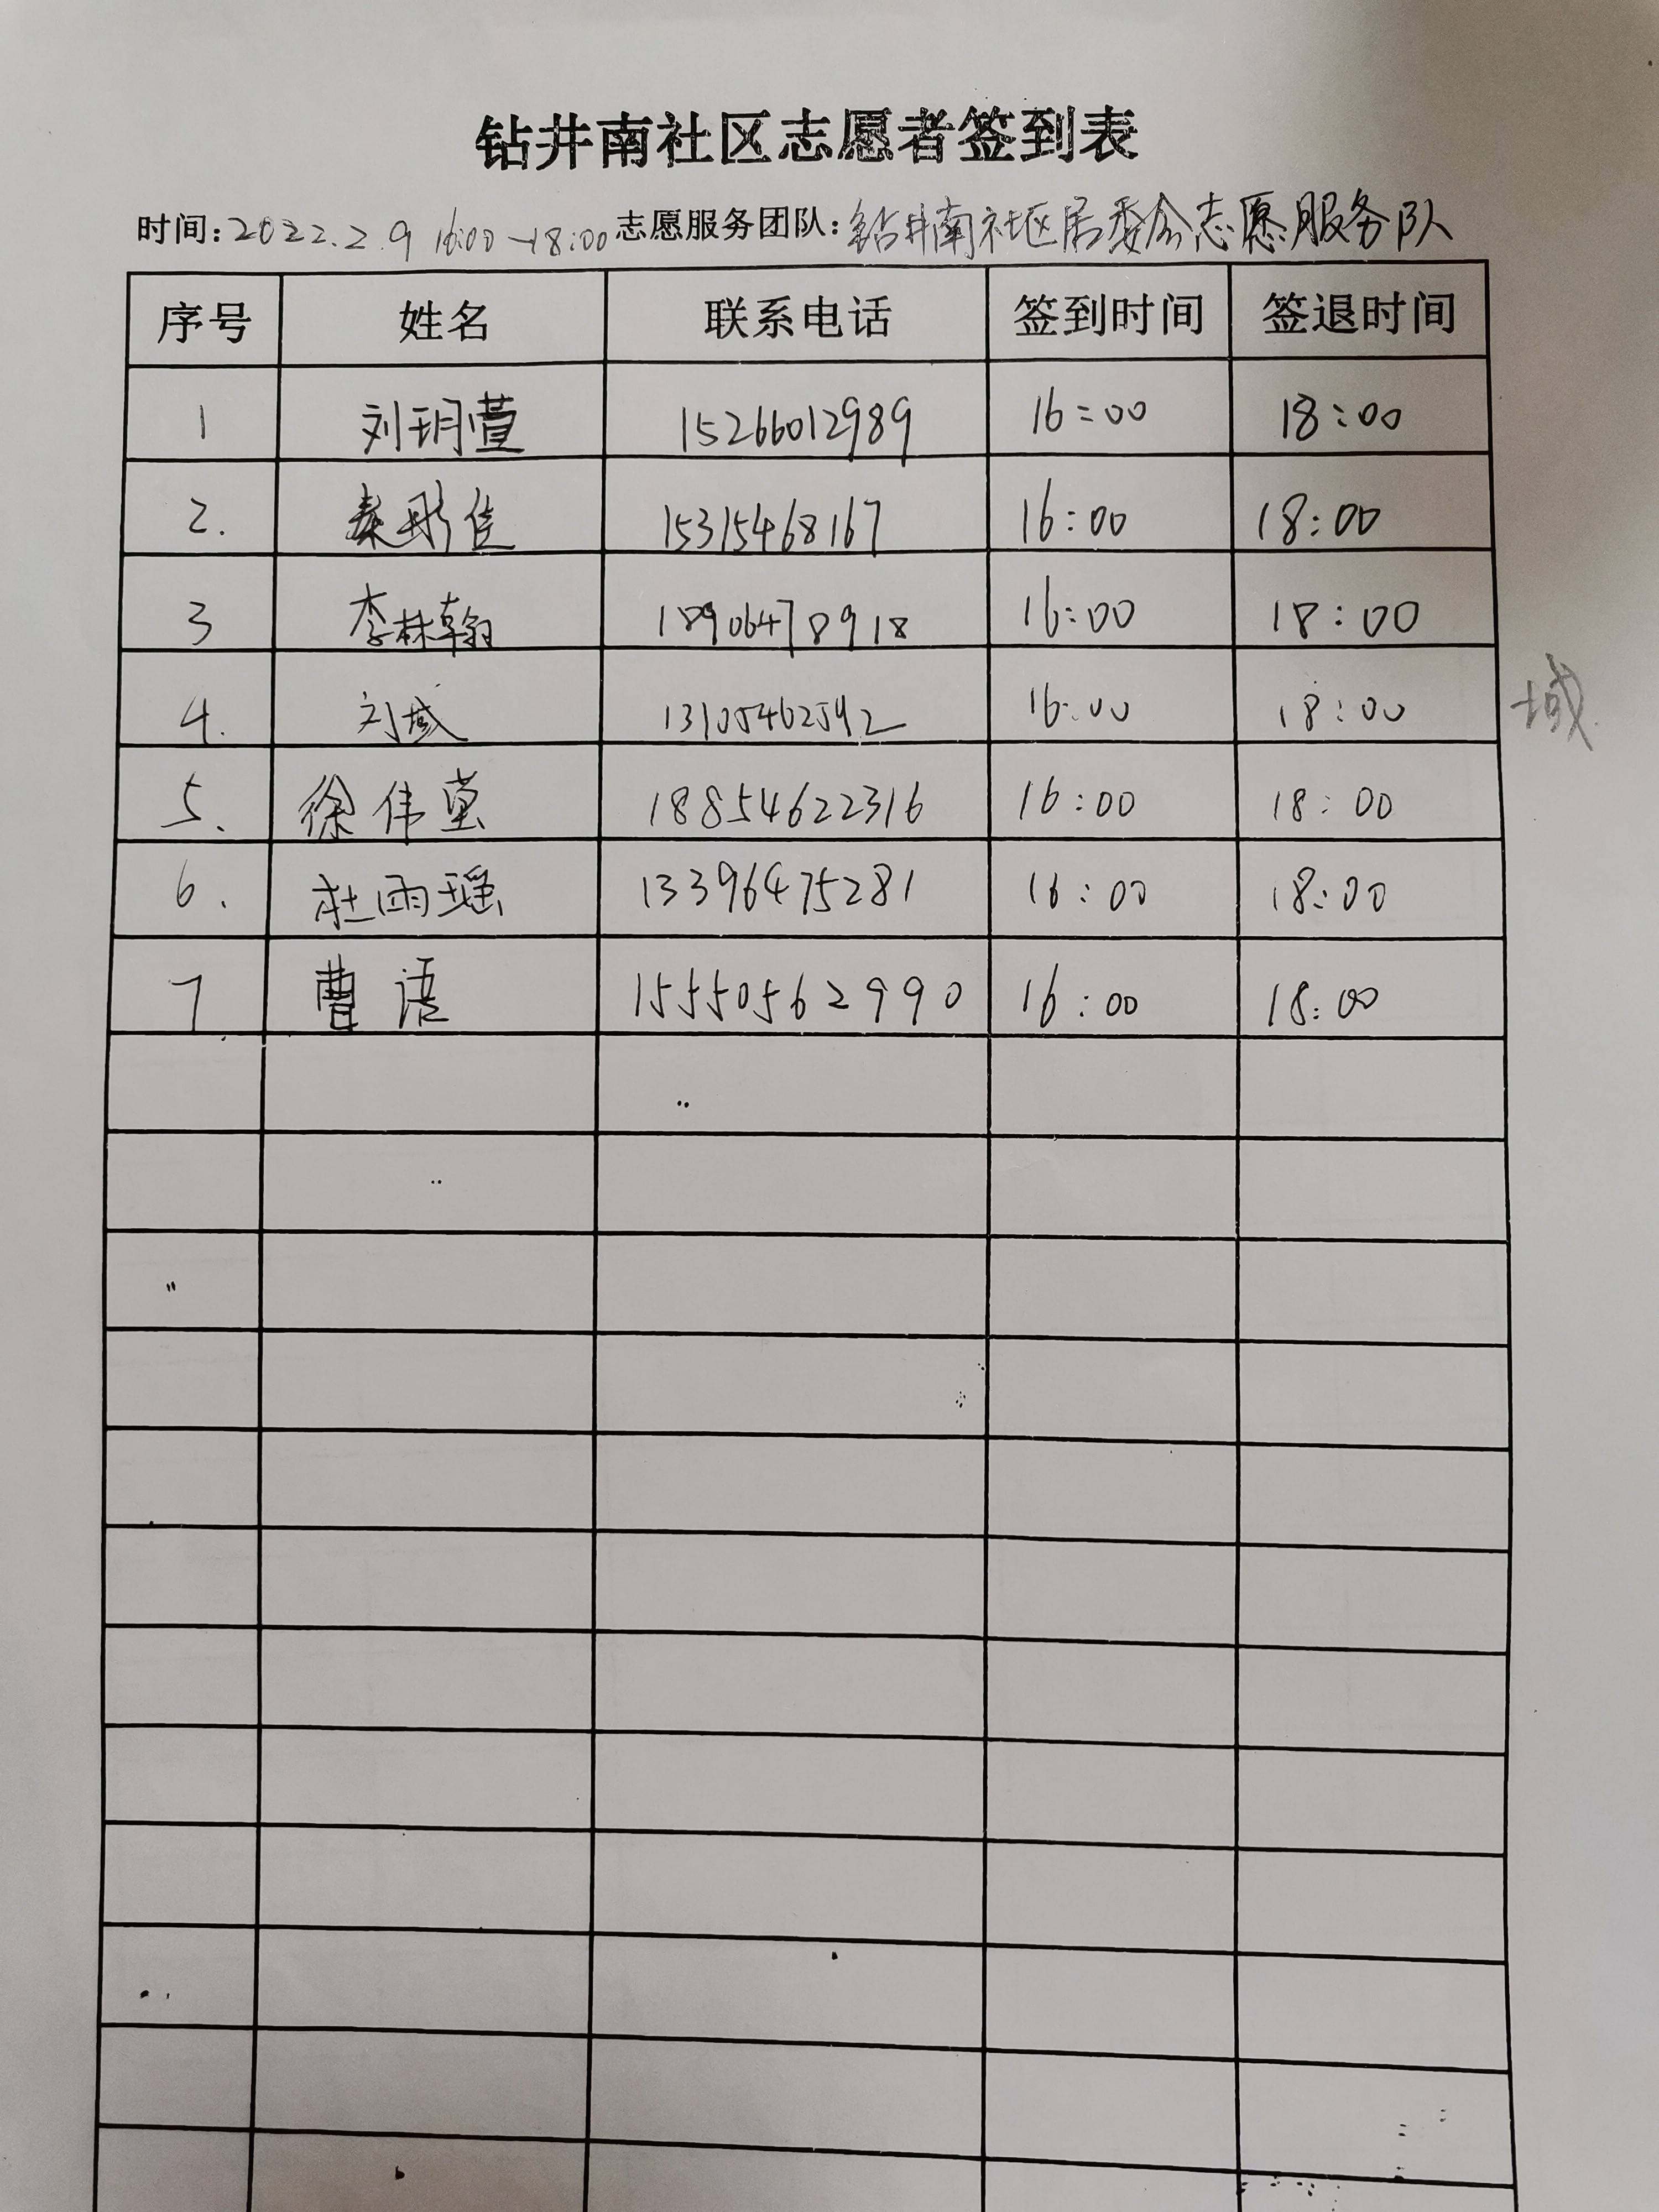 钻井南社区志愿者签到表
时间:2022.2.9 16:00—18:00 志愿服务团队:钻井南社区居委会志愿服务队
序号 姓名 联系电话 签到时间 签退时间
1 刘玥萱 15266012989 16:00 18:00
2. 秦彤佳 15315468167 16:00 18:00
3 李林翰 18906478918 16:00 18:00
4. 刘域 13105462592 16:00 18:00 域
5. 徐伟 18854622316 16:00 18:00
6. 杜雨瑶 13396475281 16:00 18:00
7 曹语 15550562990 16:00 18:00